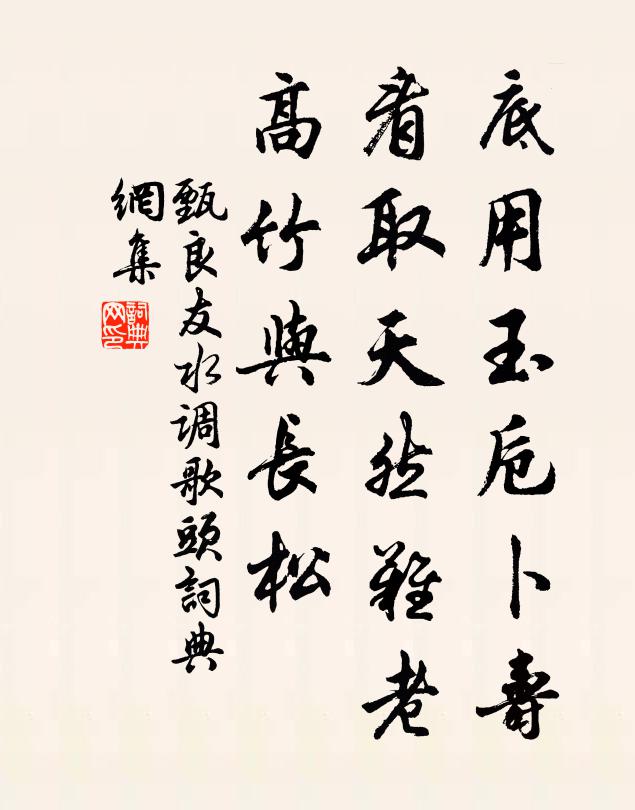 底用玉卮卜壽
看取天然難老
高竹與長松
甄良友水调歌頭詞典
網集
詞典网印